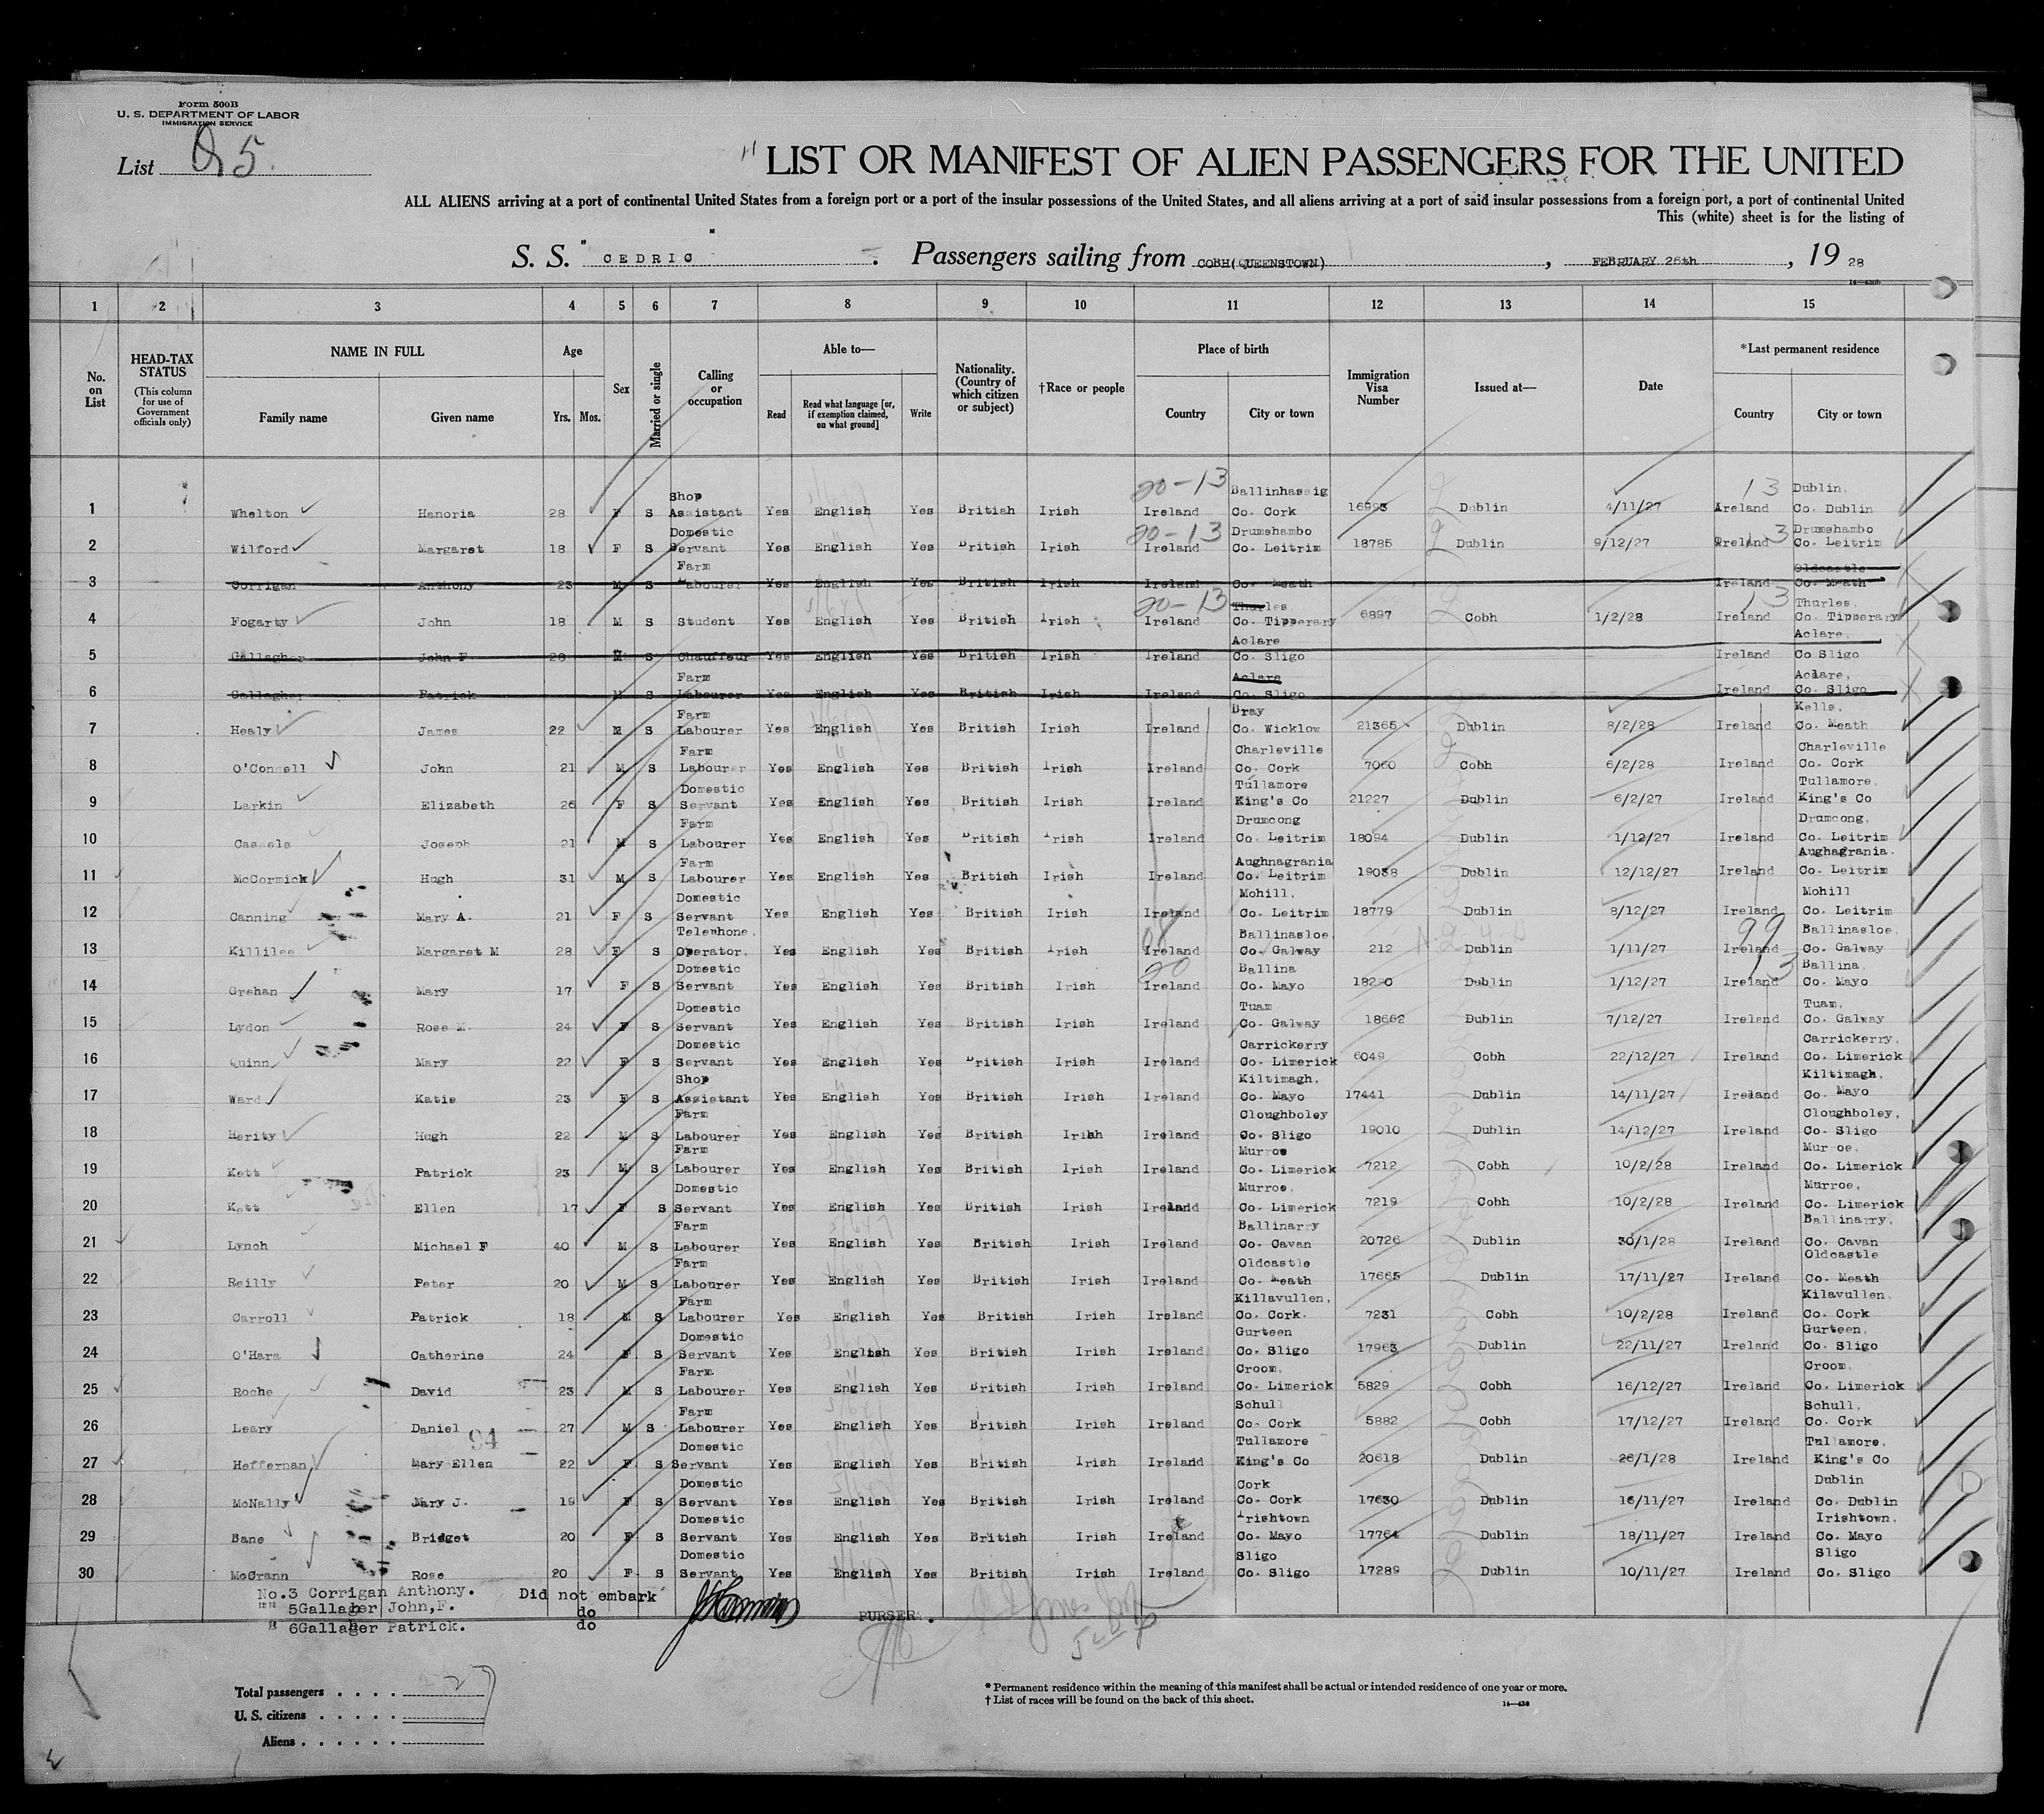 Form 500B
U. S. DEPARTMENT OF LABOR
IMMIGRATION SERVICE
List 5.
LIST OR MANIFEST OF ALIEN PASSENGERS FOR THE UNITED
ALL ALIENS arriving at a port of continental United States from a foreign port or a port of the insular possessions of the United States, and all aliens arriving at a port of said insular possessions from a foreign port, a port of continental United
This (white) sheet is for the listing of
S. S. "CEDRIC" Passengers sailing from COBH(QUEENSTOWN), FEBRUARY 26th, 19 28
1 2 3 4 5 6 7 8 9 10 11 12 13 14 15
No. on List
HEAD-TAX STATUS (This column for use of Government officials only)
NAME IN FULL Family name Given name
Age Yrs. Mos.
Sex
Married or single
Calling or occupation
Able to— Read Read what language [or, if exemption claimed, on what ground] Write
Nationality. (Country of which citizen or subject)
†Race or people
Place of birth Country City or town
Immigration Visa Number
Issued at—
Date
*Last permanent residence Country City or town
1 Whelton Hanoria 28 F S Shop Assistant Yes English Yes British Irish 20-13 Ireland Ballinhassig Co. Cork 16993 Dublin 4/11/27 13 Ireland Dublin, Co. Dublin
2 Wilford Margaret 18 F S Domestic Servant Yes English Yes British Irish 20-13 Ireland Drumshambo Co. Leitrim 18785 Dublin 9/12/27 13 Ireland Drumshambo Co. Leitrim
3 Corrigan Anthony 23 M S Farm Labourer Yes English Yes British Irish Ireland Co. Meath Ireland Oldcastle Co. Meath
4 Fogarty John 18 M S Student Yes English Yes British Irish 20-13 Ireland Thurles, Co. Tipperary 6897 Cobh 1/2/28 13 Ireland Thurles, Co. Tipperary
5 Gallagher John F 28 M S Chauffeur Yes English Yes British Irish Ireland Aclare Co. Sligo Ireland Aclare, Co Sligo
6 Gallagher Patrick M S Farm Labourer Yes English Yes British Irish Ireland Aclare Co. Sligo Ireland Aclare, Co. Sligo
7 Healy James 22 M S Farm Labourer Yes English Yes British Irish Ireland Bray Co. Wicklow 21365 Dublin 8/2/28 Ireland Kells, Co. Meath
8 O'Connell John 21 M S Farm Labourer Yes English Yes British Irish Ireland Charleville Co. Cork 7060 Cobh 6/2/28 Ireland Charleville Co. Cork
9 Larkin Elizabeth 26 F S Domestic Servant Yes English Yes British Irish Ireland Tullamore King's Co 21227 Dublin 6/2/27 Ireland Tullamore, King's Co
10 Cassels Joseph 21 M S Farm Labourer Yes English Yes British Irish Ireland Drumcong Co. Leitrim 18094 Dublin 1/12/27 Ireland Drumcong, Co. Leitrim
11 McCormick Hugh 31 M S Farm Labourer Yes English Yes British Irish Ireland Aughnagrania Co. Leitrim 19038 Dublin 12/12/27 Ireland Aughagrania. Co. Leitrim
12 Canning Mary A. 21 F S Domestic Servant Yes English Yes British Irish Ireland Mohill, Co. Leitrim 18779 Dublin 8/12/27 Ireland Mohill Co. Leitrim
13 Killilea Margaret M 28 F S Telephone. Operator. Yes English Yes British Irish Ireland Ballinasloe, Co. Galway 212 Dublin 1/11/27 99 Ireland Ballinasloe, Co. Galway
14 Grehan Mary 17 F S Domestic Servant Yes English Yes British Irish 20 Ireland Ballina Co. Mayo 18290 Dublin 1/12/27 13 Ireland Ballina, Co. Mayo
15 Lydon Rose M. 24 F S Domestic Servant Yes English Yes British Irish Ireland Tuam Co. Galway 18662 Dublin 7/12/27 Ireland Tuam, Co. Galway
16 Quinn Mary 22 F S Domestic Servant Yes English Yes British Irish Ireland Carrickerry Co. Limerick 6049 Cobh 22/12/27 Ireland Carrickerry, Co. Limerick
17 Ward Katie 23 F S Shop Assistant Yes English Yes British Irish Ireland Kiltimagh, Co. Mayo 17441 Dublin 14/11/27 Ireland Kiltimagh, Co. Mayo
18 Herity Hugh 22 M S Farm Labourer Yes English Yes British Irish Ireland Cloughboley Co. Sligo 19010 Dublin 14/12/27 Ireland Cloughboley, Co. Sligo
19 Kett Patrick 23 M S Farm Labourer Yes English Yes British Irish Ireland Murroe Co. Limerick 7212 Cobh 10/2/28 Ireland Murroe, Co. Limerick
20 Kett Ellen 17 F S Domestic Servant Yes English Yes British Irish Ireland Murroe, Co. Limerick 7219 Cobh 10/2/28 Ireland Murroe, Co. Limerick
21 Lynch Michael F 40 M S Farm Labourer Yes English Yes British Irish Ireland Ballinarry Co. Cavan 20726 Dublin 30/1/28 Ireland Ballinarry, Co. Cavan
22 Reilly Peter 20 M S Farm Labourer Yes English Yes British Irish Ireland Oldcastle Co. Meath 17665 Dublin 17/11/27 Ireland Oldcastle Co. Meath
23 Carroll Patrick 18 M S Farm Labourer Yes English Yes British Irish Ireland Killavullen, Co. Cork. 7231 Cobh 10/2/28 Ireland Kilavullen, Co. Cork
24 O'Hara Catherine 24 F S Domestic Servant Yes English Yes British Irish Ireland Gurteen Co. Sligo 17963 Dublin 22/11/27 Ireland Gurteen, Co. Sligo
25 Roche David 23 M S Farm Labourer Yes English Yes British Irish Ireland Croom, Co. Limerick 5829 Cobh 16/12/27 Ireland Croom, Co. Limerick
26 Leary Daniel 94 27 M S Farm Labourer Yes English Yes British Irish Ireland Schull Co. Cork 5882 Cobh 17/12/27 Ireland Schull, Co. Cork
27 Heffernan Mary Ellen 22 F S Domestic Servant Yes English Yes British Irish Ireland Tullamore King's Co 20618 Dublin 26/1/28 Ireland Tullamore, King's Co
28 McNally Mary J. 19 F S Domestic Servant Yes English Yes British Irish Ireland Cork Co. Cork 17630 Dublin 16/11/27 Ireland Dublin Co. Dublin
29 Bane Bridget 20 F S Domestic Servant Yes English Yes British Irish Ireland Irishtown Co. Mayo 17764 Dublin 18/11/27 Ireland Irishtown, Co. Mayo
30 McGrann Rose 20 F S Domestic Servant Yes English Yes British Irish Ireland Sligo Co. Sligo 17289 Dublin 10/11/27 Ireland Sligo Co. Sligo
No.3 Corrigan Anthony. Did not embark
" 5 Gallagher John,F. do PURSER.
" 6 Gallagher Patrick. do
Total passengers . . . . 27
U. S. citizens . . . . .
Aliens . . . . . .
* Permanent residence within the meaning of this manifest shall be actual or intended residence of one year or more.
† List of races will be found on the back of this sheet.